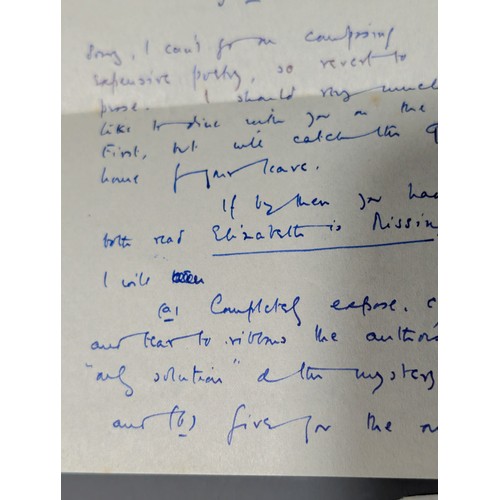 Sorry, I can't go on composing
expensive poetry, so revert to
prose. I should very much
like to dine with you on the
First, but will catch the 9
home if your leave.
If by then you had
both read Elizabeth is Missing
I will
(a) Completely expose,
and tear to ribbons the author's
"only solution" of the mystery
and (b) give you the